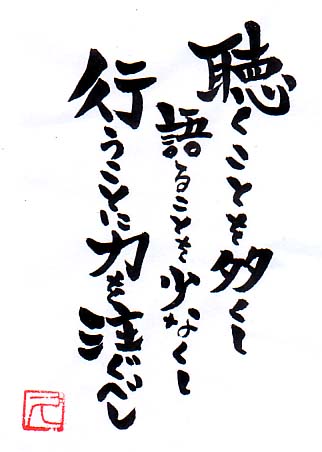 聴くことを多くし
語ることを少なくし
行うことに力を注ぐべし